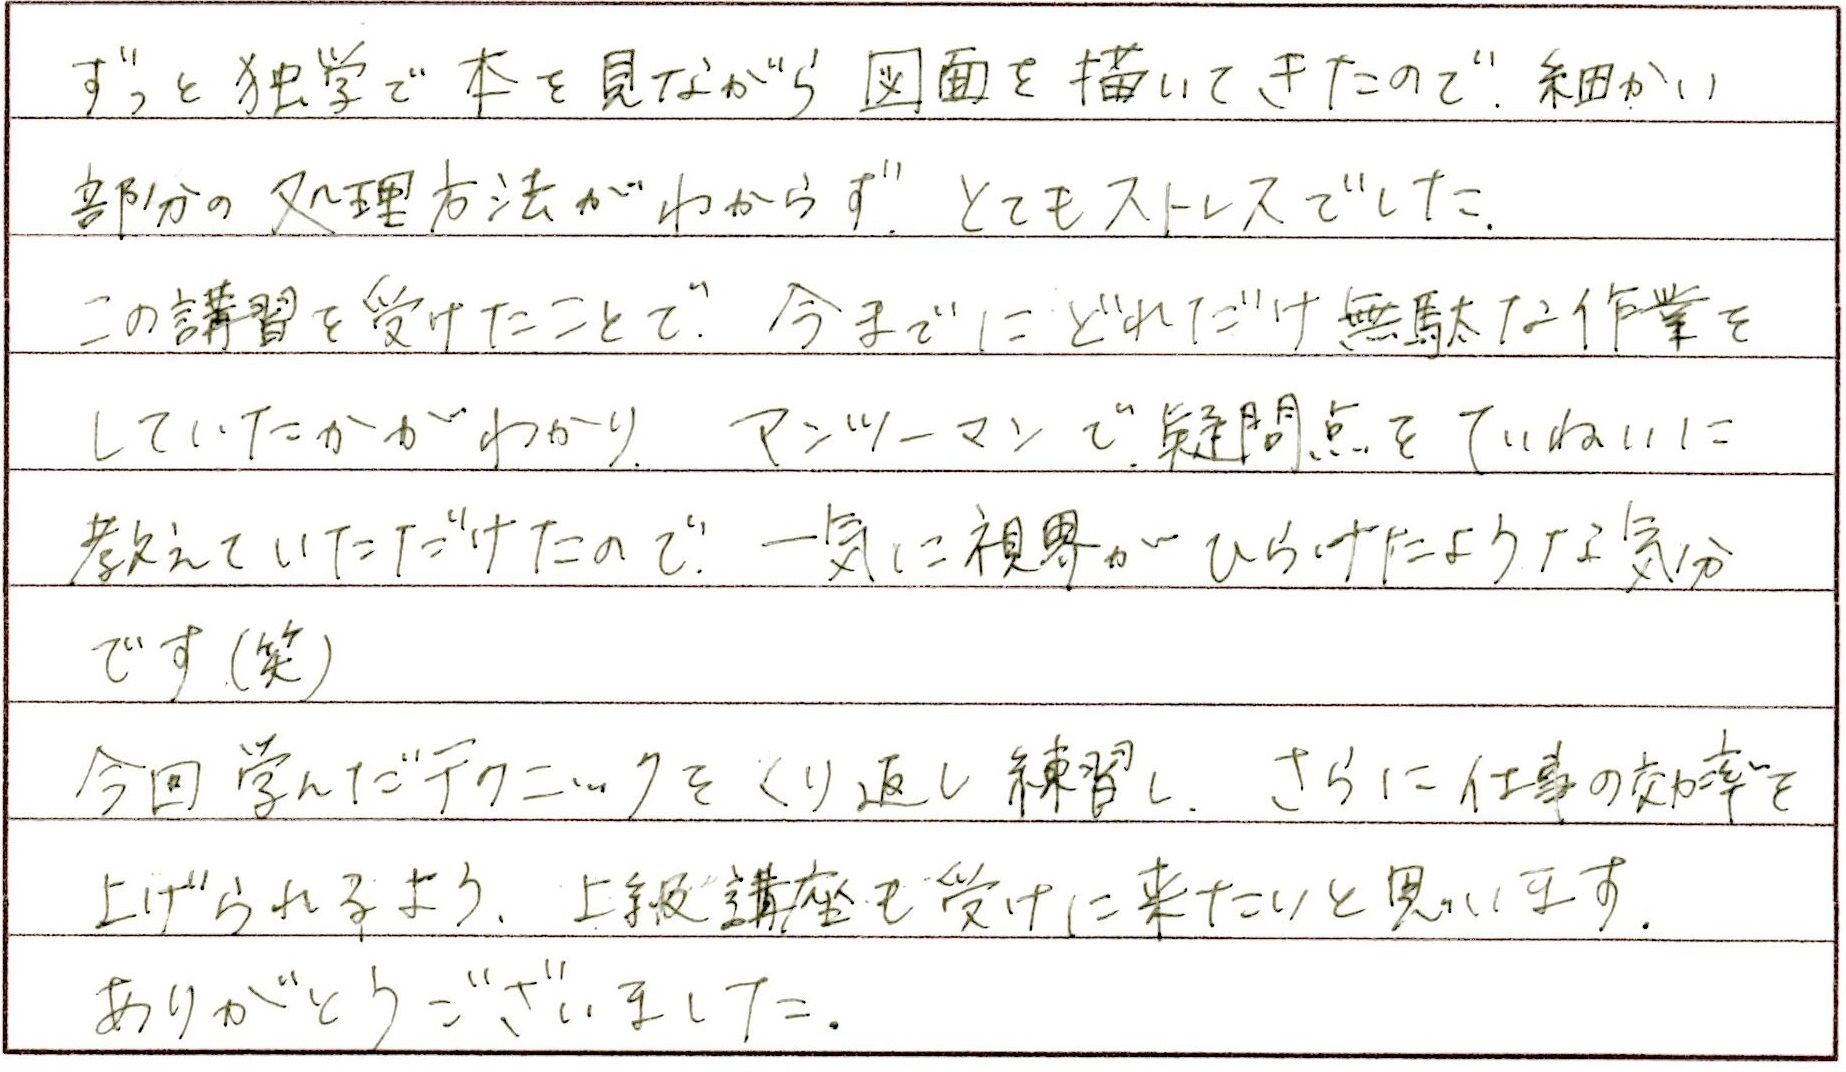 ずっと独学で本を見ながら図面を描いてきたので、細かい
部分の処理方法がわからず、とてもストレスでした。
この講習を受けたことで、今までにどれだけ無駄な作業を
していたかがわかり、マンツーマンで、疑問点をていねいに
教えていただけたので、一気に視界がひらけたような気分
です(笑)
今回学んだテクニックをくり返し練習し、さらに仕事の効率を
上げられるよう、上級講座も受けに来たいと思います。
ありがとうございました。